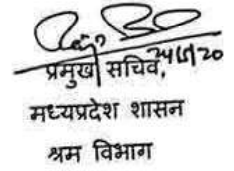 प्रमुख सचिव,
मध्यप्रदेश शासन
श्रम विभाग